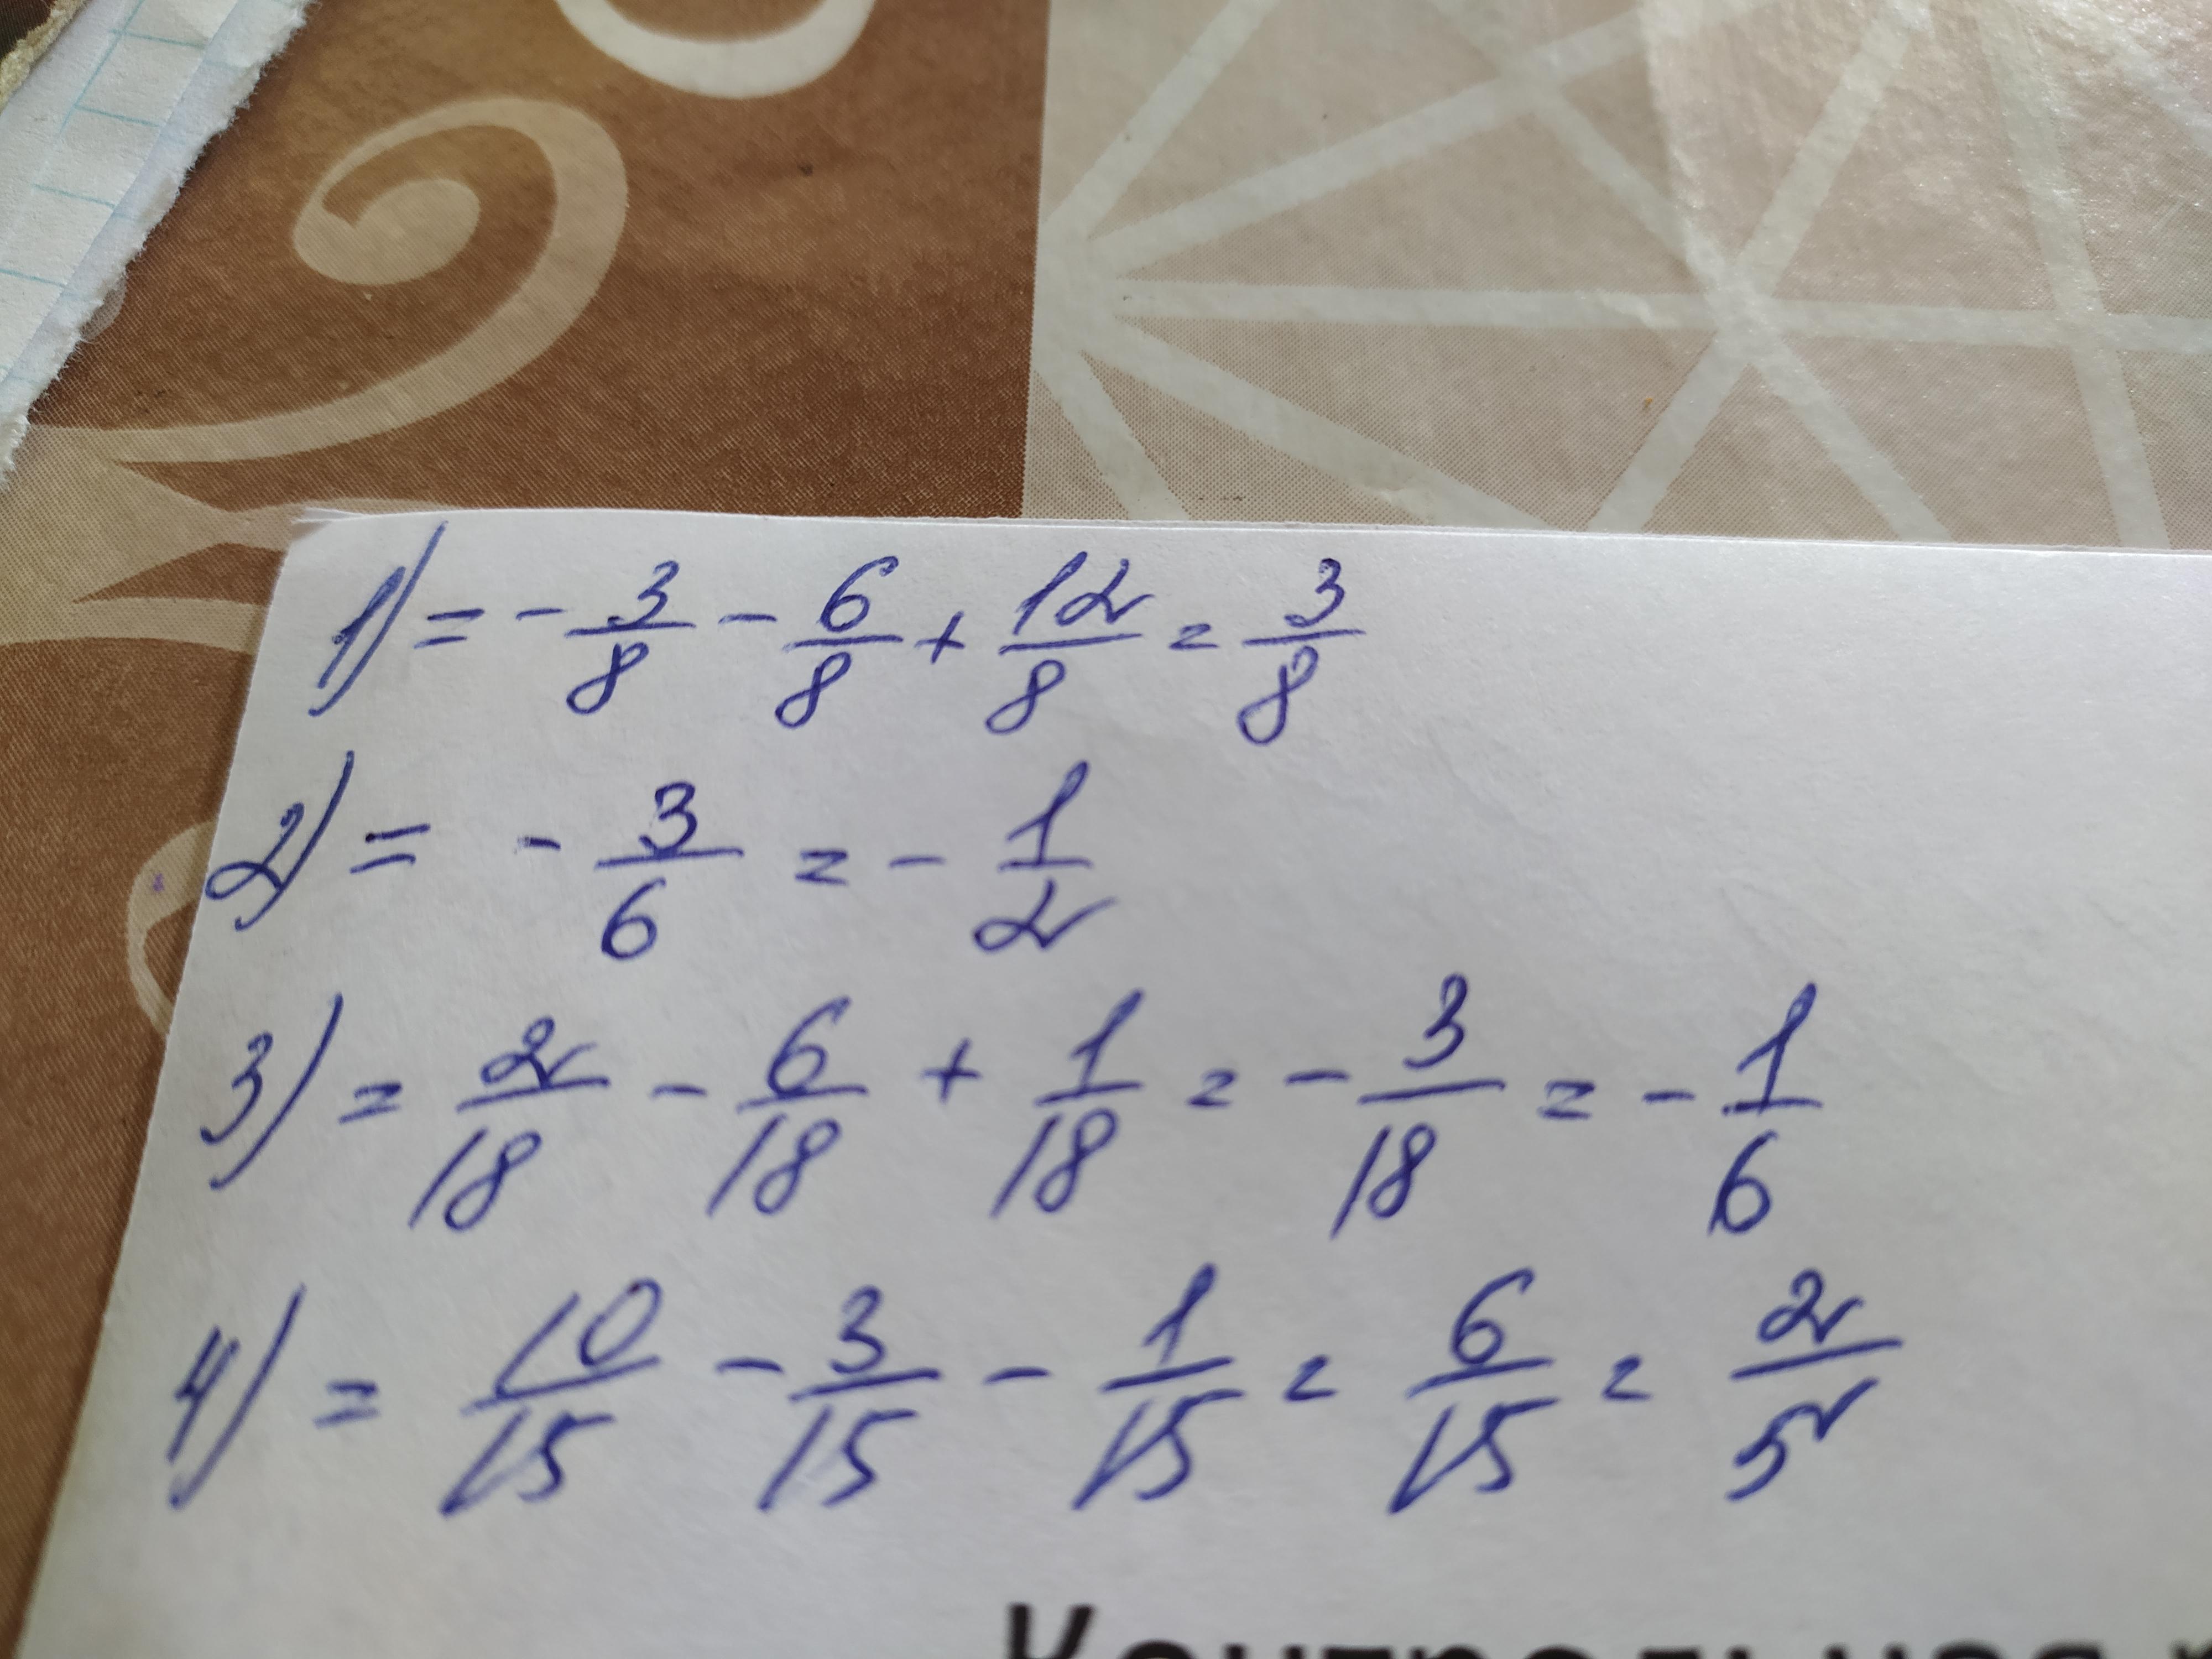 1) = - 3/8 - 6/8 + 12/8 = 3/8
2) = - 3/6 = - 1/2
3) = 2/18 - 6/18 + 1/18 = - 3/18 = - 1/6
4) = 10/15 - 3/15 - 1/15 = 6/15 = 2/5
Контрольная